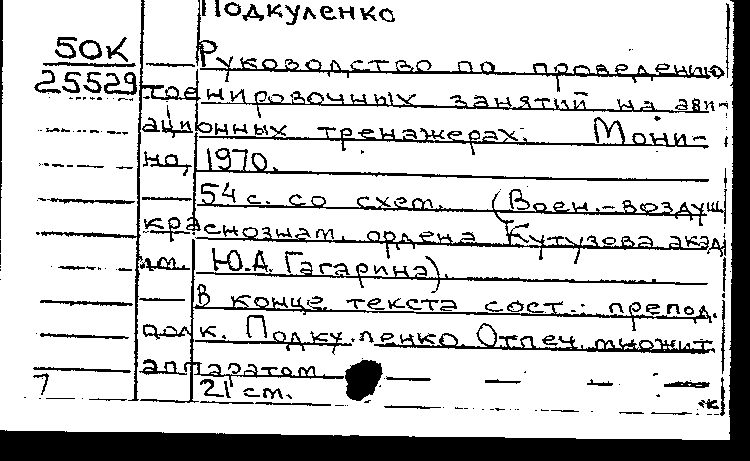 Подкуленко
50К
25529
Руководство по проведению
тренировочных занятий на ави-
ационных тренажерах. Мони-
но, 1970.
54 с. со схем. (Воен.-воздуш
краснознам. ордена Кутузова акад
им. Ю.А. Гагарина).
В конце текста сост.: препод.
полк. Подкуленко. Отпеч. множит.
аппаратом.
21 см.
7